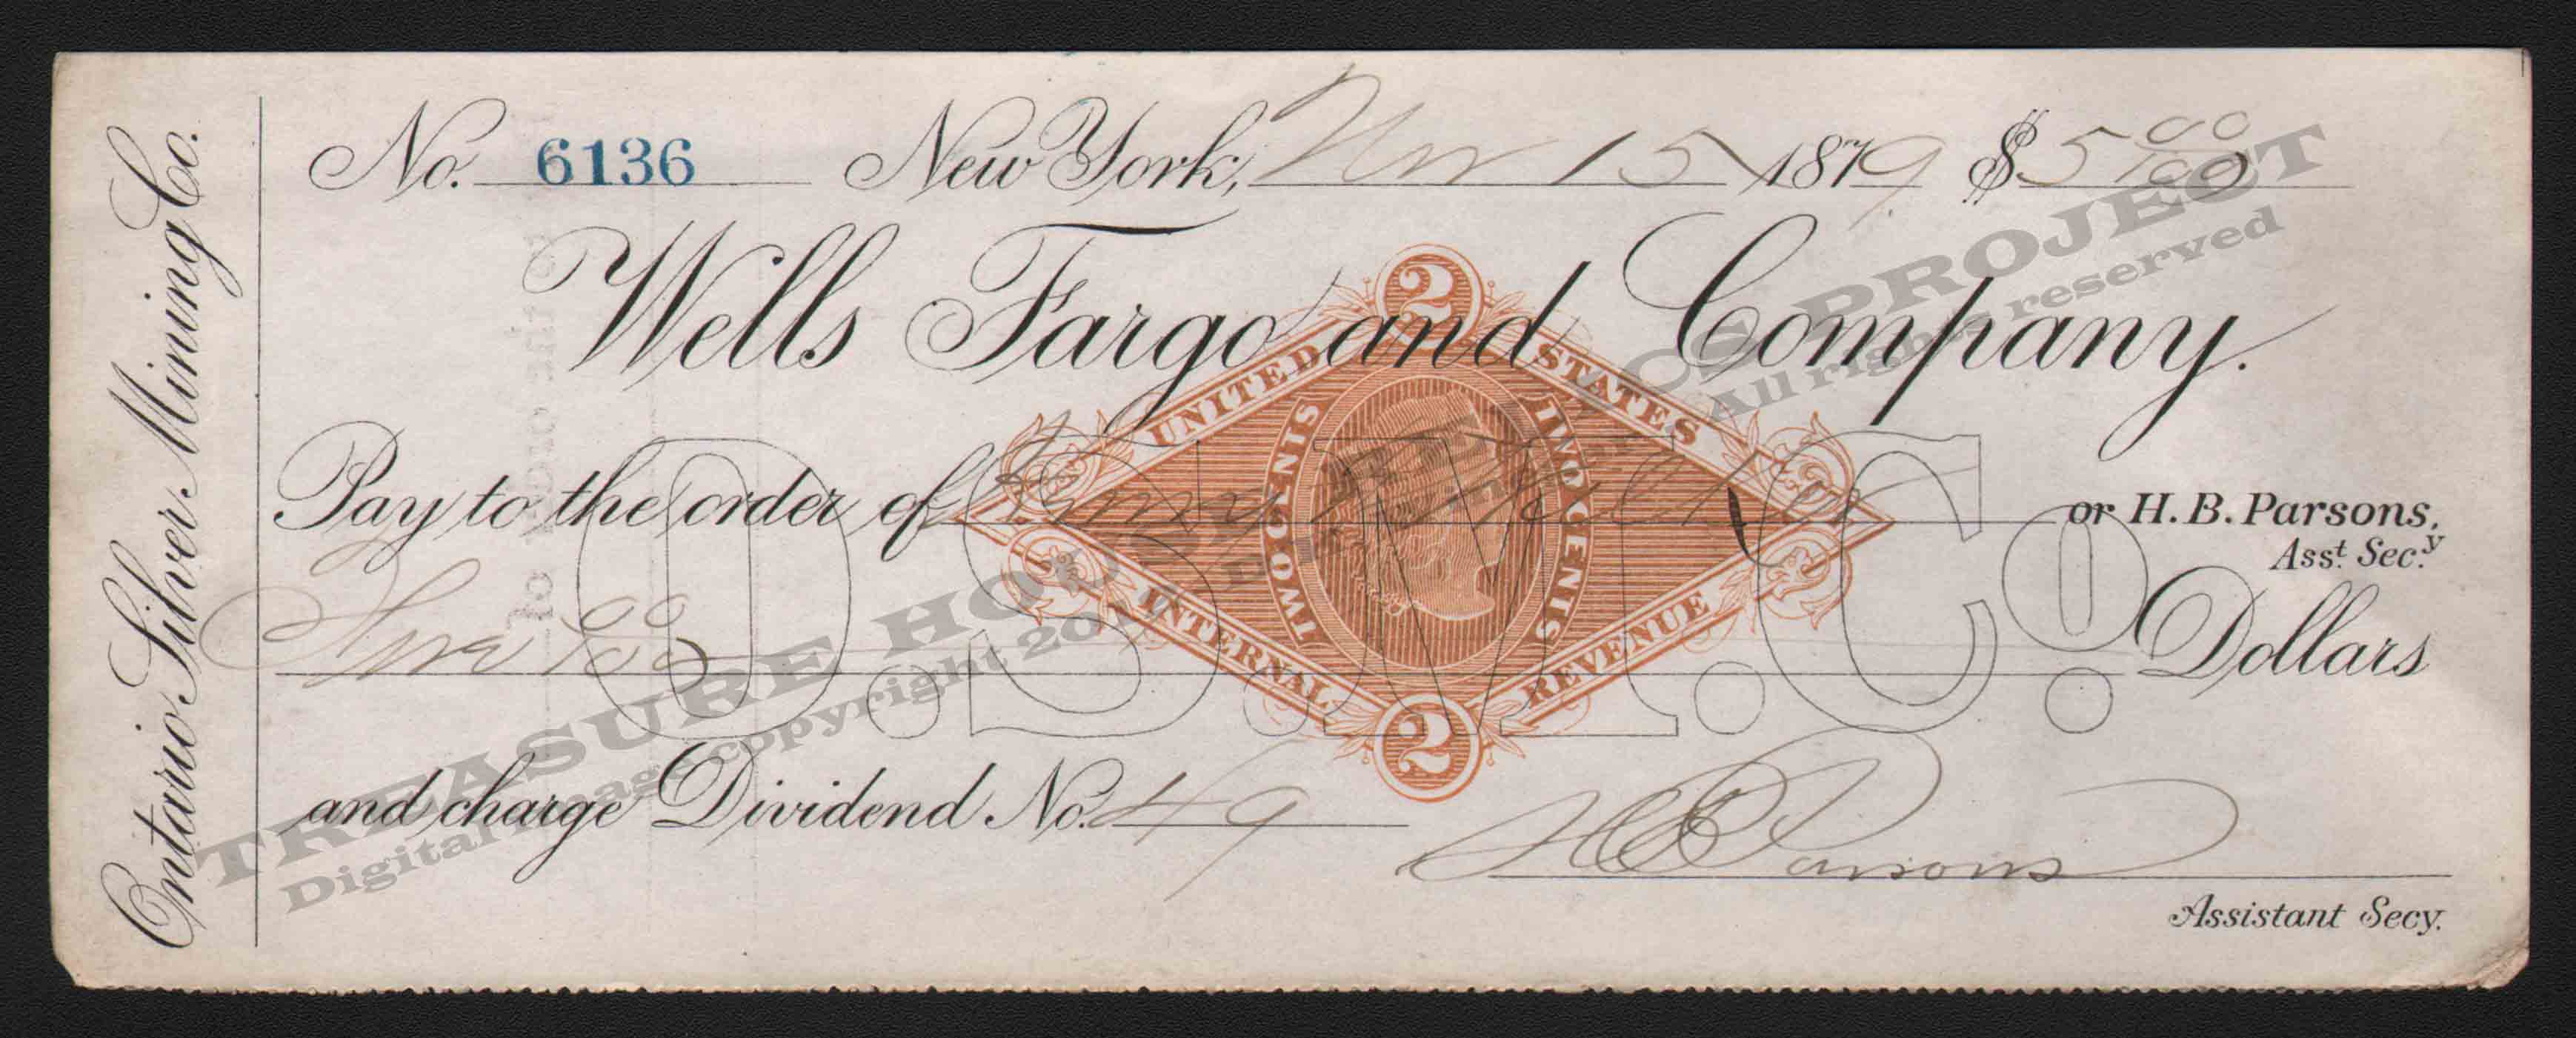 Ontario Silver Mining Co.
No. 6136 New York, Nov 15 1879 $5 00/100
Wells Fargo and Company.
2
UNITED STATES
TWO CENTS TWO CENTS
Pay to the order of or H. B. Parsons,
Asst. Secy.
O.S.M.Co.
Five 00/100 Dollars
INTERNAL REVENUE
2
and charge Dividend No. 49
H B Parsons
Assistant Secy.
TREASURE HOUSE RELICS PROJECT
Digital image copyright All rights reserved